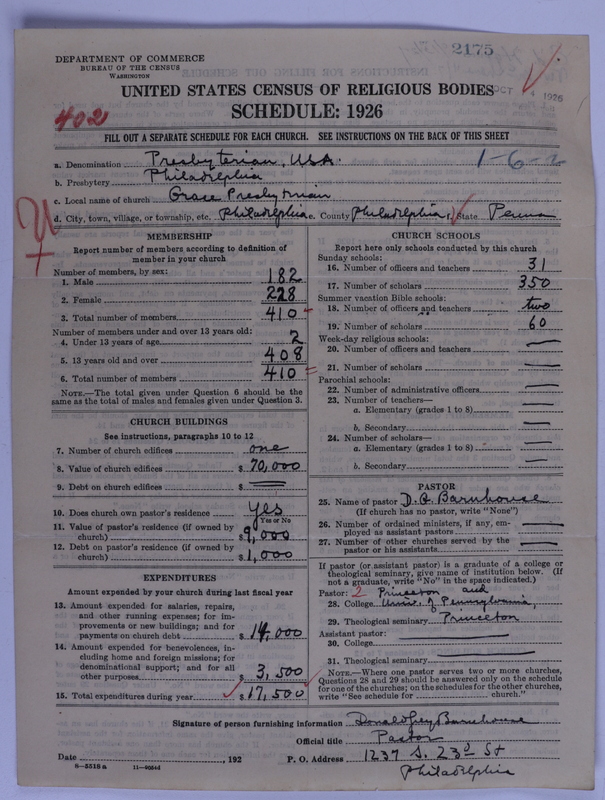 2175
DEPARTMENT OF COMMERCE
BUREAU OF THE CENSUS
WASHINGTON
UNITED STATES CENSUS OF RELIGIOUS BODIES
OCT 4 1926
SCHEDULE: 1926
402
FILL OUT A SEPARATE SCHEDULE FOR EACH CHURCH. SEE INSTRUCTIONS ON THE BACK OF THIS SHEET
a. Denomination Presbyterian, USA.
1-6-2
b. Presbytery Philadelphia
c. Local name of church Grace Presbyterian
d. City, town, village, or township, etc. Philadelphia e. County Philadelphia f. State Penna
MEMBERSHIP
Report number of members according to definition of
member in your church
Number of members, by sex:
1. Male 182
2. Female 228
3. Total number of members 410
Number of members under and over 13 years old:
4. Under 13 years of age 2
5. 13 years old and over 408
6. Total number of members 410
NOTE.—The total given under Question 6 should be
same as the total of males and females given under Question 3.
CHURCH BUILDINGS
See instructions, paragraphs 10 to 12
7. Number of church edifices one
8. Value of church edifices $ 70,000
9. Debt on church edifices $
10. Does church own pastor's residence yes
Yes or No
11. Value of pastor's residence (if owned by
church) $ 9,000
12. Debt on pastor's residence (if owned by
church) $ 1,000
EXPENDITURES
Amount expended by your church during last fiscal year
13. Amount expended for salaries, repairs,
and other running expenses; for im-
provements or new buildings; and for
payments on church debt $ 14,000
14. Amount expended for benevolences, in-
cluding home and foreign missions; for
denominational support; and for all
other purposes $ 3,500
15. Total expenditures during year $ 17,500
CHURCH SCHOOLS
Report here only schools conducted by this church
Sunday schools:
16. Number of officers and teachers 31
17. Number of scholars 350
Summer vacation Bible schools:
18. Number of officers and teachers two
19. Number of scholars 60
Week-day religious schools:
20. Number of officers and teachers
21. Number of scholars
Parochial schools:
22. Number of administrative officers
23. Number of teachers—
a. Elementary (grades 1 to 8)
b. Secondary
24. Number of scholars—
a. Elementary (grades 1 to 8)
b. Secondary
PASTOR
25. Name of pastor D. G. Barnhouse
(If church has no pastor, write "None")
26. Number of ordained ministers, if any, em-
ployed as assistant pastors
27. Number of other churches served by the
pastor or his assistants
If pastor (or assistant pastor) is a graduate of a college or
theological seminary, give name of institution below. (If
not a graduate, write "No" in the space indicated.)
Pastor: 2 Princeton and
28. College Univ. of Pennsylvania,
29. Theological seminary Princeton
Assistant pastor:
30. College
31. Theological seminary
NOTE.—Where one pastor serves two or more churches,
Questions 28 and 29 should be answered only on the schedule
for one of the churches; on the schedules for the other churches,
write "See schedule for church"
Signature of person furnishing information Donald Grey Barnhouse
Official title Pastor
Date , 192 P. O. Address 1237 S. 23d St
8-5518 a
Philadelphia